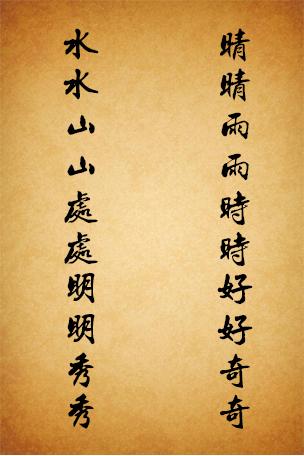 晴晴雨雨時時好好奇奇
水水山山處處明明秀秀